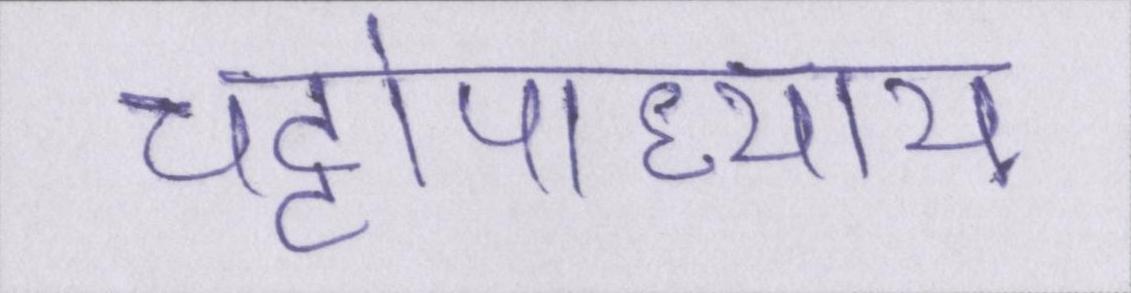 चट्टोपाध्याय